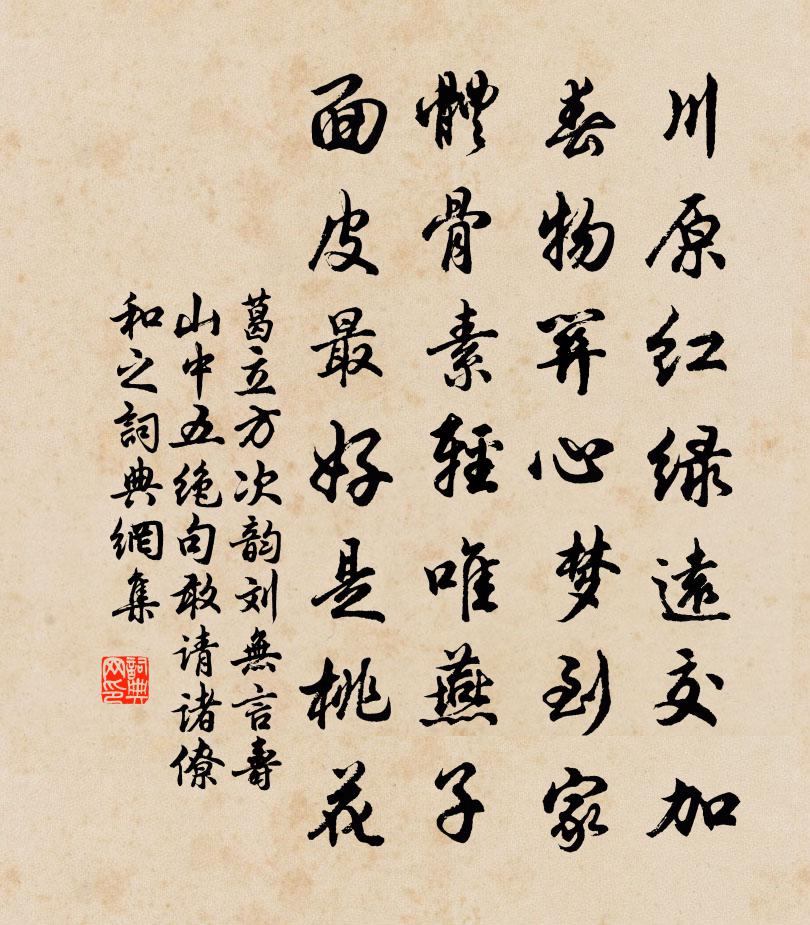 川原红绿遠交加
春物關心梦到家
體骨素輕唯燕子
面皮最好是桃花
葛立方次韵刘無言壽
山中五绝句敢请诸僚
和之詞典網集
詞典网印